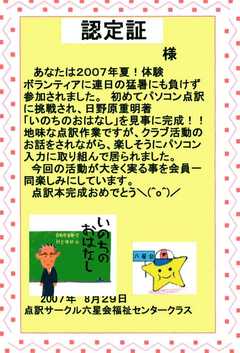 認定証
様
あなたは2007年夏!体験
ボランティアに連日の猛暑にも負けず
参加されました。 初めてパソコン点訳
に挑戦され、日野原重明著
「いのちのおはなし」を見事に完成!!
地味な点訳作業ですが、クラブ活動の
お話をされながら、楽しそうにパソコン
入力に取り組んで居られました。
今回の活動が大きく実る事を会員一
同楽しみにしています。
点訳本完成おめでとう＼(^o^)／
いのちの
おはなし
六星会
2007年 8月29日
点訳サークル六星会福祉センタークラス